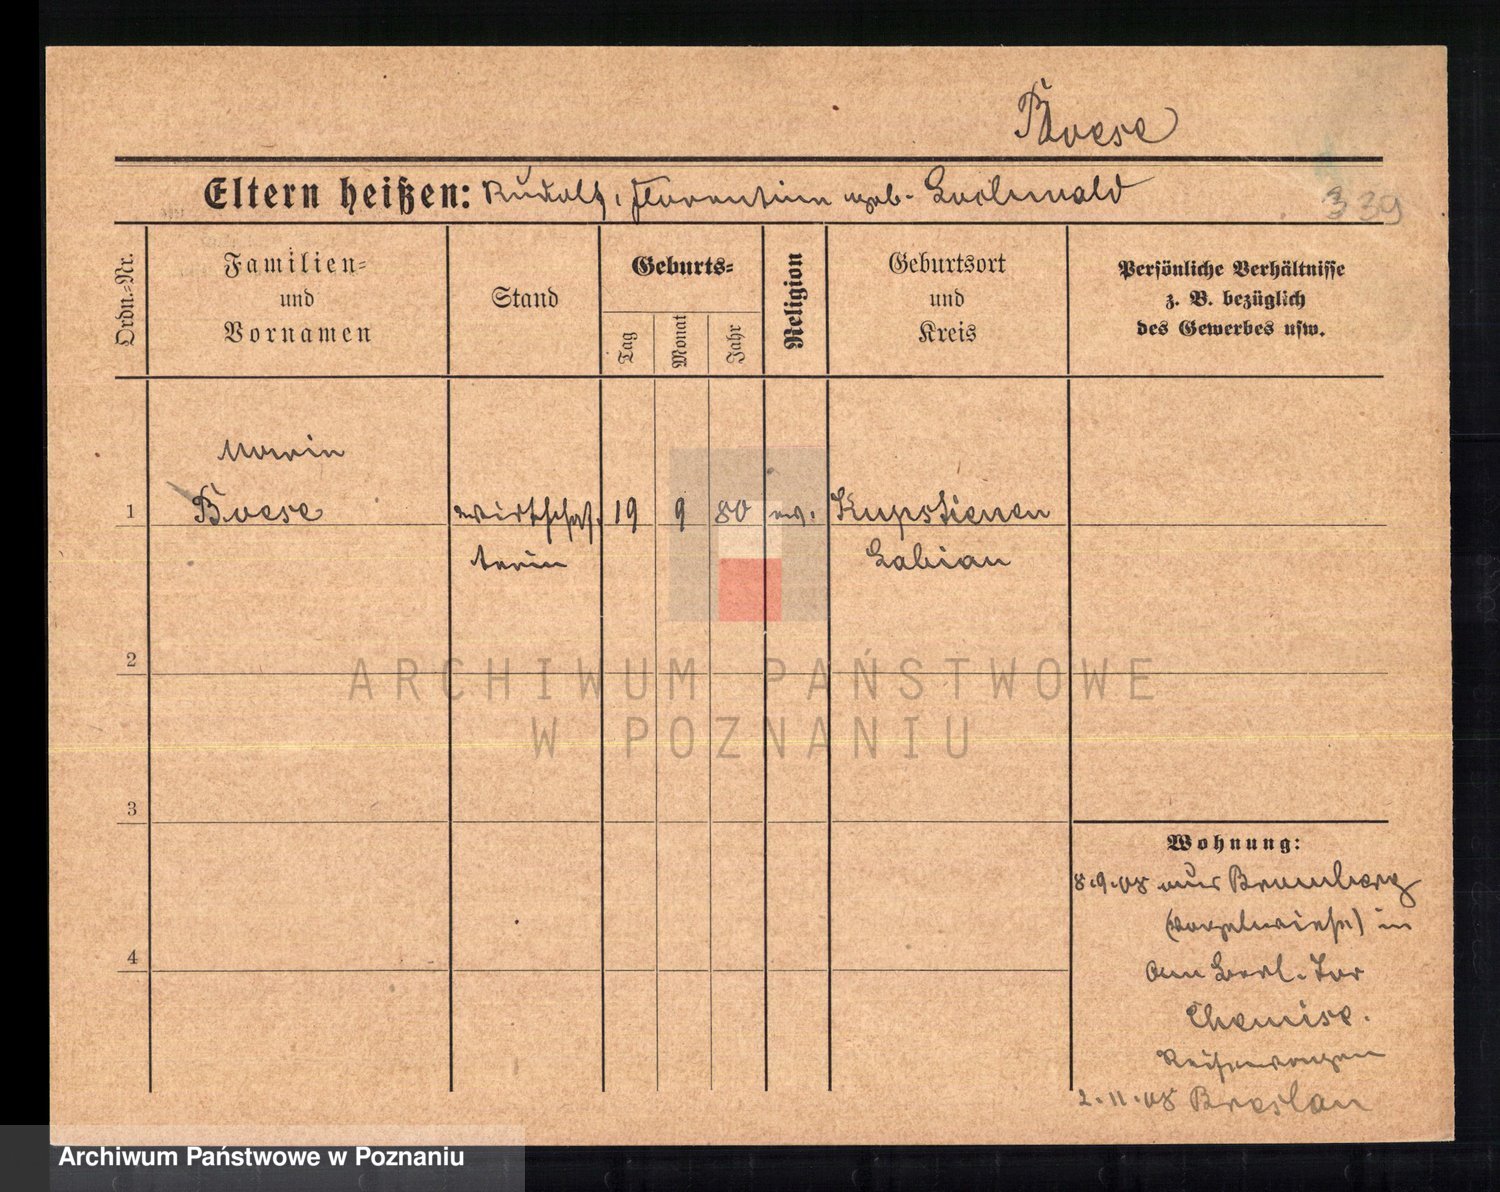 Boese
Eltern heißen: Rudolf, Florentine geb. Lachmald
339
Ordn.-Nr.
Familien-
und
Vornamen
Stand
Geburts-
Tag
Monat
Jahr
Religion
Geburtsort
und
Kreis
Persönliche Verhältnisse
z. B. bezüglich
des Gewerbes usw.
Boese
1
wirtschaf-
terin
19
9
80
ev.
Kupstienen
Labiau
2
3
4
Wohnung:
8.9.08 aus Bromberg
in
am Berl. Tor
Reisewagen
2.11.08 Breslau
ARCHIWUM PAŃSTWOWE
W POZNANIU
Archiwum Państwowe w Poznaniu